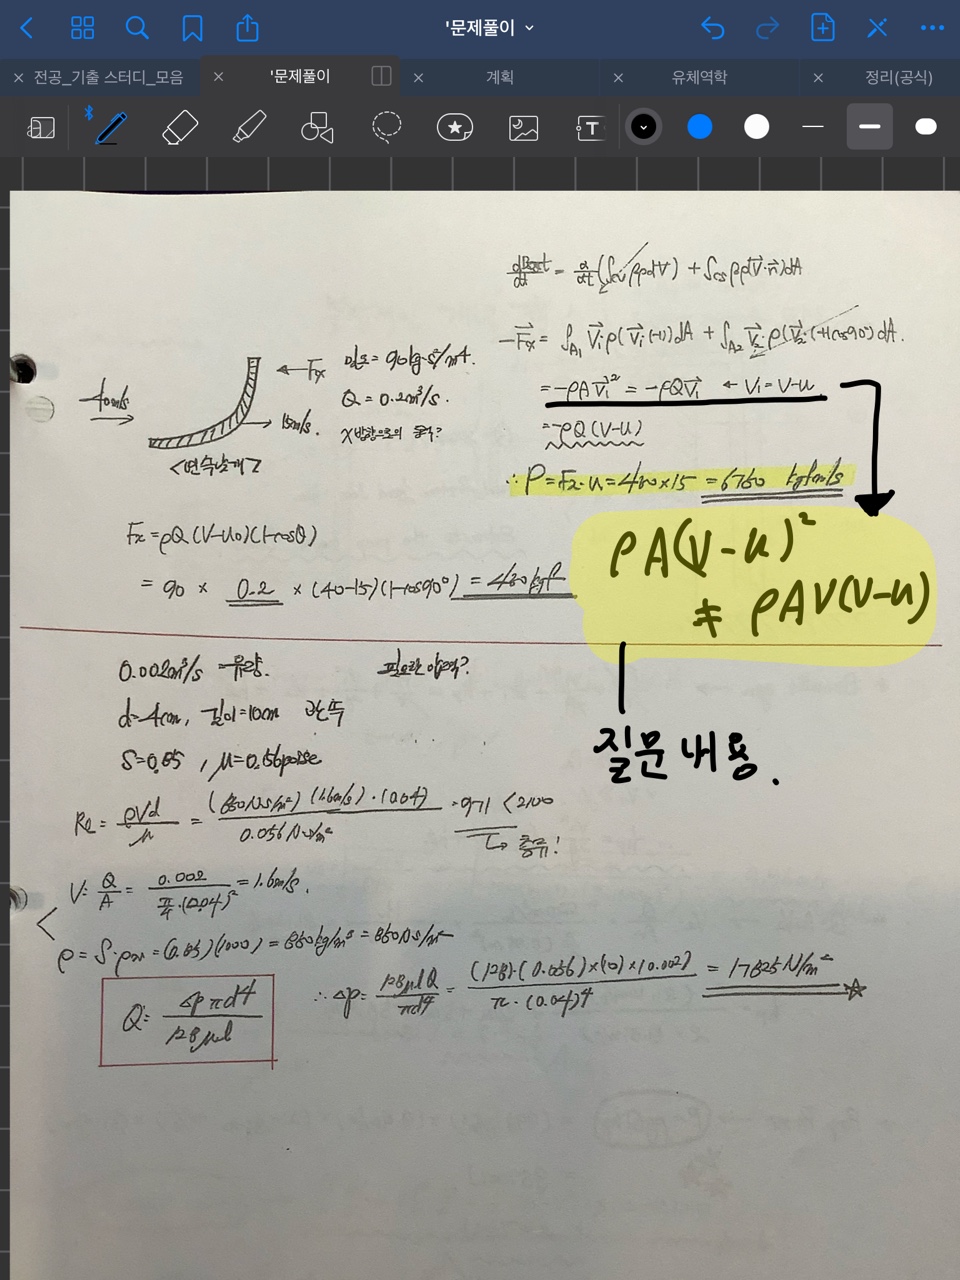 '문제풀이
전공_기출 스터디_모음
'문제풀이
계획
유체역학
정리(공식)
T
= d/dt (∫cv βρdV) + ∫cs βρ(V⃗·n⃗)dA
-F⃗x = ∫A₁ V⃗₁ρ(V⃗₁(-1))dA + ∫A₂ V⃗₂ρ(V⃗₂·(+1)cos90°)dA.
= -ρAV⃗₁² = -ρQV⃗₁ ← V₁=V-u
= -ρQ(V-u)
∴ P=Fx·u= ×15 =6750 kgf·m/s
40m/s
← Fx
15m/s.
<연속날개>
밀도= 90kg·s²/m⁴.
Q = 0.2m³/s.
X방향으로의 동력?
Fx=ρQ(V-u₀)(1-cosθ)
= 90 × 0.2 × (40-15)(1-cos90°) = 450kgf
ρA(V-u)²
≠ ρAV(V-u)
질문 내용.
0.002m³/s =유량. 필요한 압력?
d=4cm, 길이=10cm
S=0.85 , μ=0.56poise
Re = ρVd/μ = (850NS/m²)(1.6m/s)·(0.04) / 0.056NS/m² =971 <2100
↳ 층류!
V= Q/A = 0.002 / π/4·(0.04)² = 1.6m/s.
ρ = S·ρw = (0.85)(1000) = 850kg/m³ = 850NS/m²
Q= Δpπd⁴ / 128μl
∴ Δp= 128μlQ / πd⁴ = (128)·(0.056)×(10)×(0.002) / π·(0.04)⁴ = 17825N/m² ☆